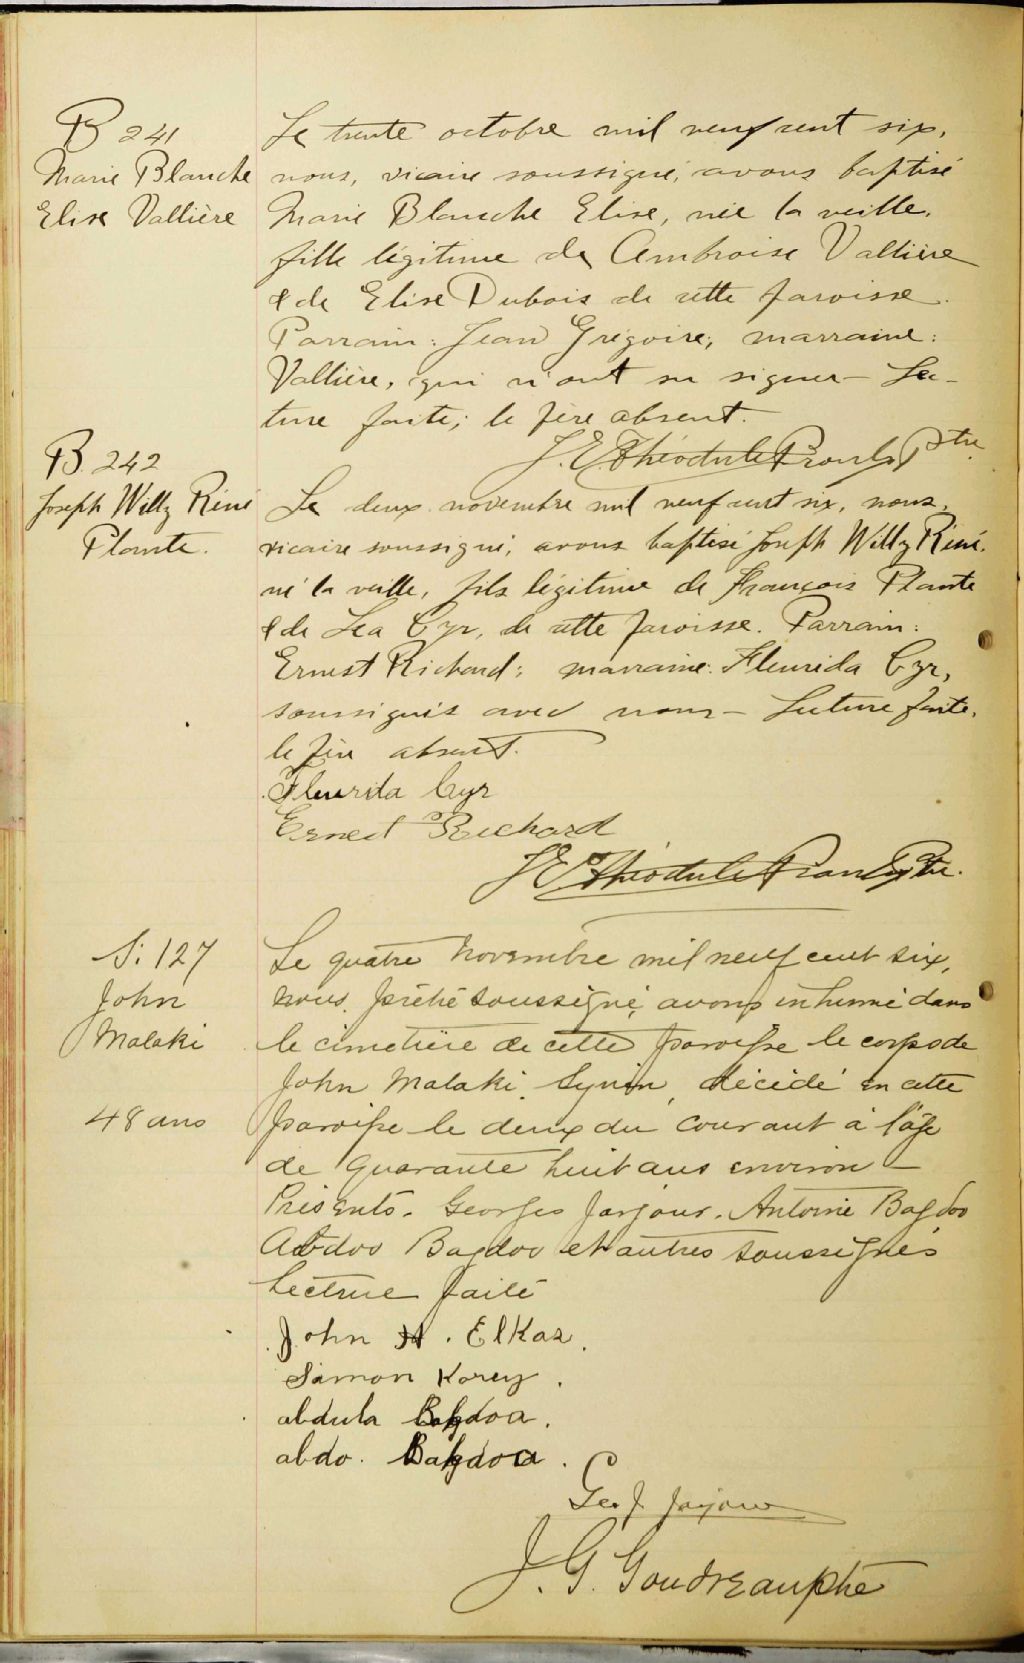 B 241
Marie Blanche
Elise Vallière
Le trente octobre mil neuf cent six,
nous, vicaire soussigné, avons baptisé
Marie Blanche Elise, née la veille,
fille légitime de Ambroise Vallière
& de Elise Dubois de cette paroisse.
Parrain: Jean Grégoire; marraine:
Vallière, qui n'ont su signer - Lec-
ture faite; le père absent.
J. E. Théodule Ptre
B. 242
Joseph Willy Réné
Plante.
Le deux novembre mil neuf cent six, nous,
vicaire soussigné, avons baptisé Joseph Willy Réné,
né la veille, fils légitime de François Plante
& de Lea Cyr, de cette paroisse. Parrain:
Ernest Richard; marraine: Fleurida Cyr,
soussignés avec nous - Lecture faite,
le père absent.
Fleurida Cyr
Ernest Richard
J E Théodule Ptre.
S. 127
John
Malaki
48 ans
Le quatre novembre mil neuf cent six,
nous, prêtre soussigné, avons inhumé dans
le cimetière de cette paroisse le corps de
John Malaki, Syrien, décédé en cette
paroisse le deux du courant à l'âge
de quarante huit ans environ -
Présents. Georges Jarjour. Antoine Bagdoo
Abdoo Bagdoo et autres soussignés
Lecture faite
John H. Elkaz.
Simon Korey.
abdula Bahdoa.
abdo. Bahdoa.
Geo. J. Jarjour
J. G. Goudreau ptre